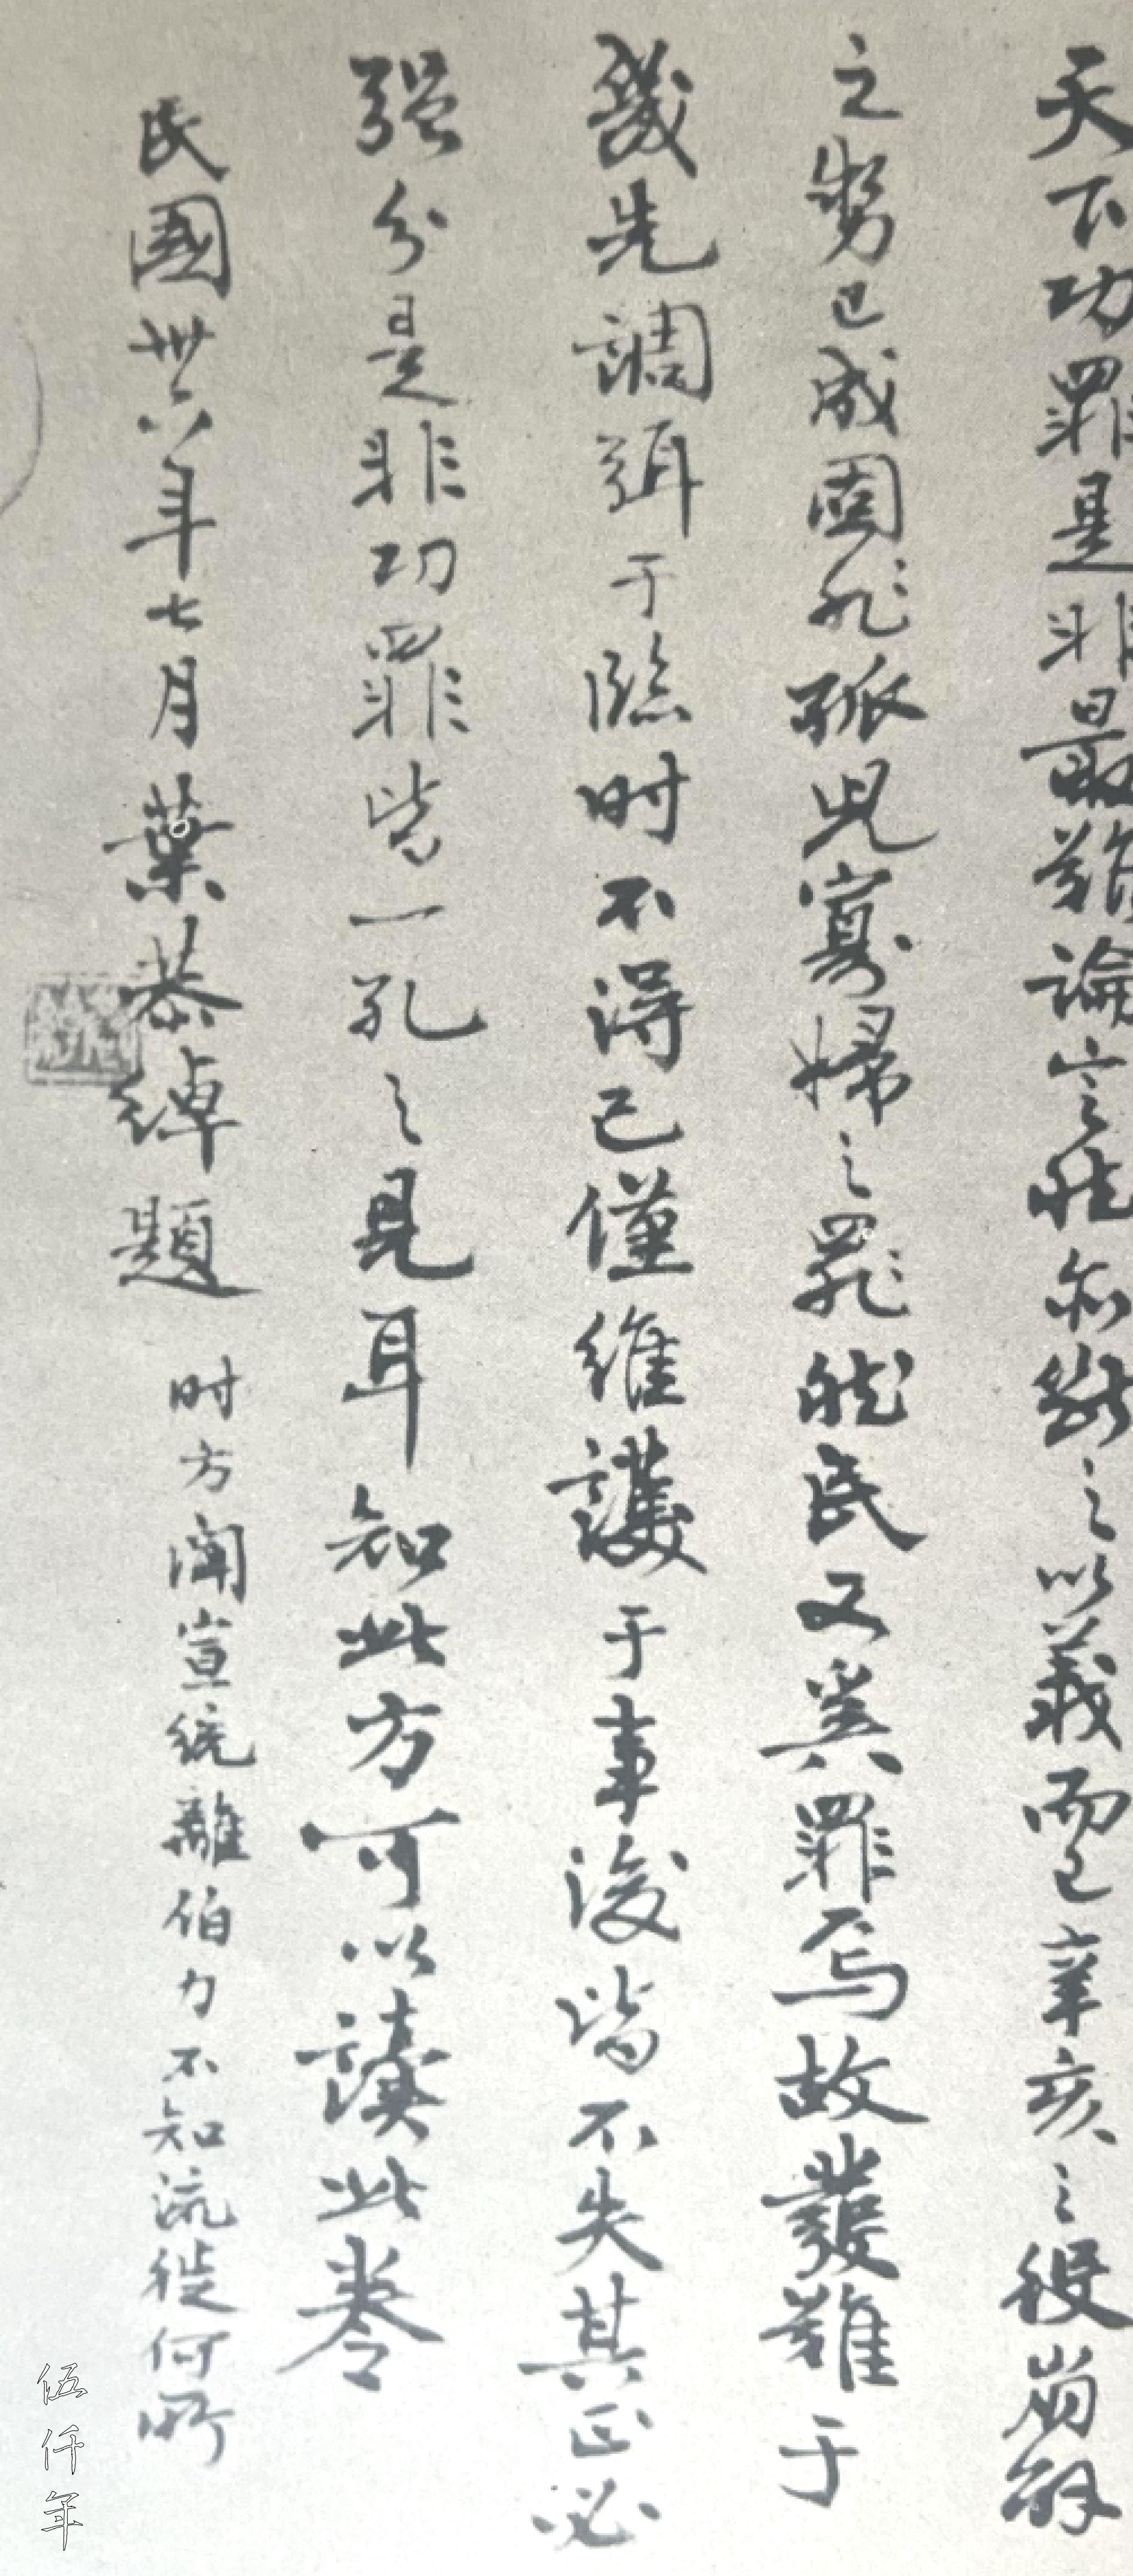 天下功罪是非最難論定然亦斷之以義而已辛亥之役崩解
之勢已成固非孤児寡婦之罪然民又奚罪焉故發難于
幾先調弭于臨時不得已僅維護于事後皆不失其正必
强分是非功罪皆一孔之見耳知此方可以讀此卷
民國卅六年七月葉恭綽題
时方聞宣統離伯力不知流徙何所
伍仟年